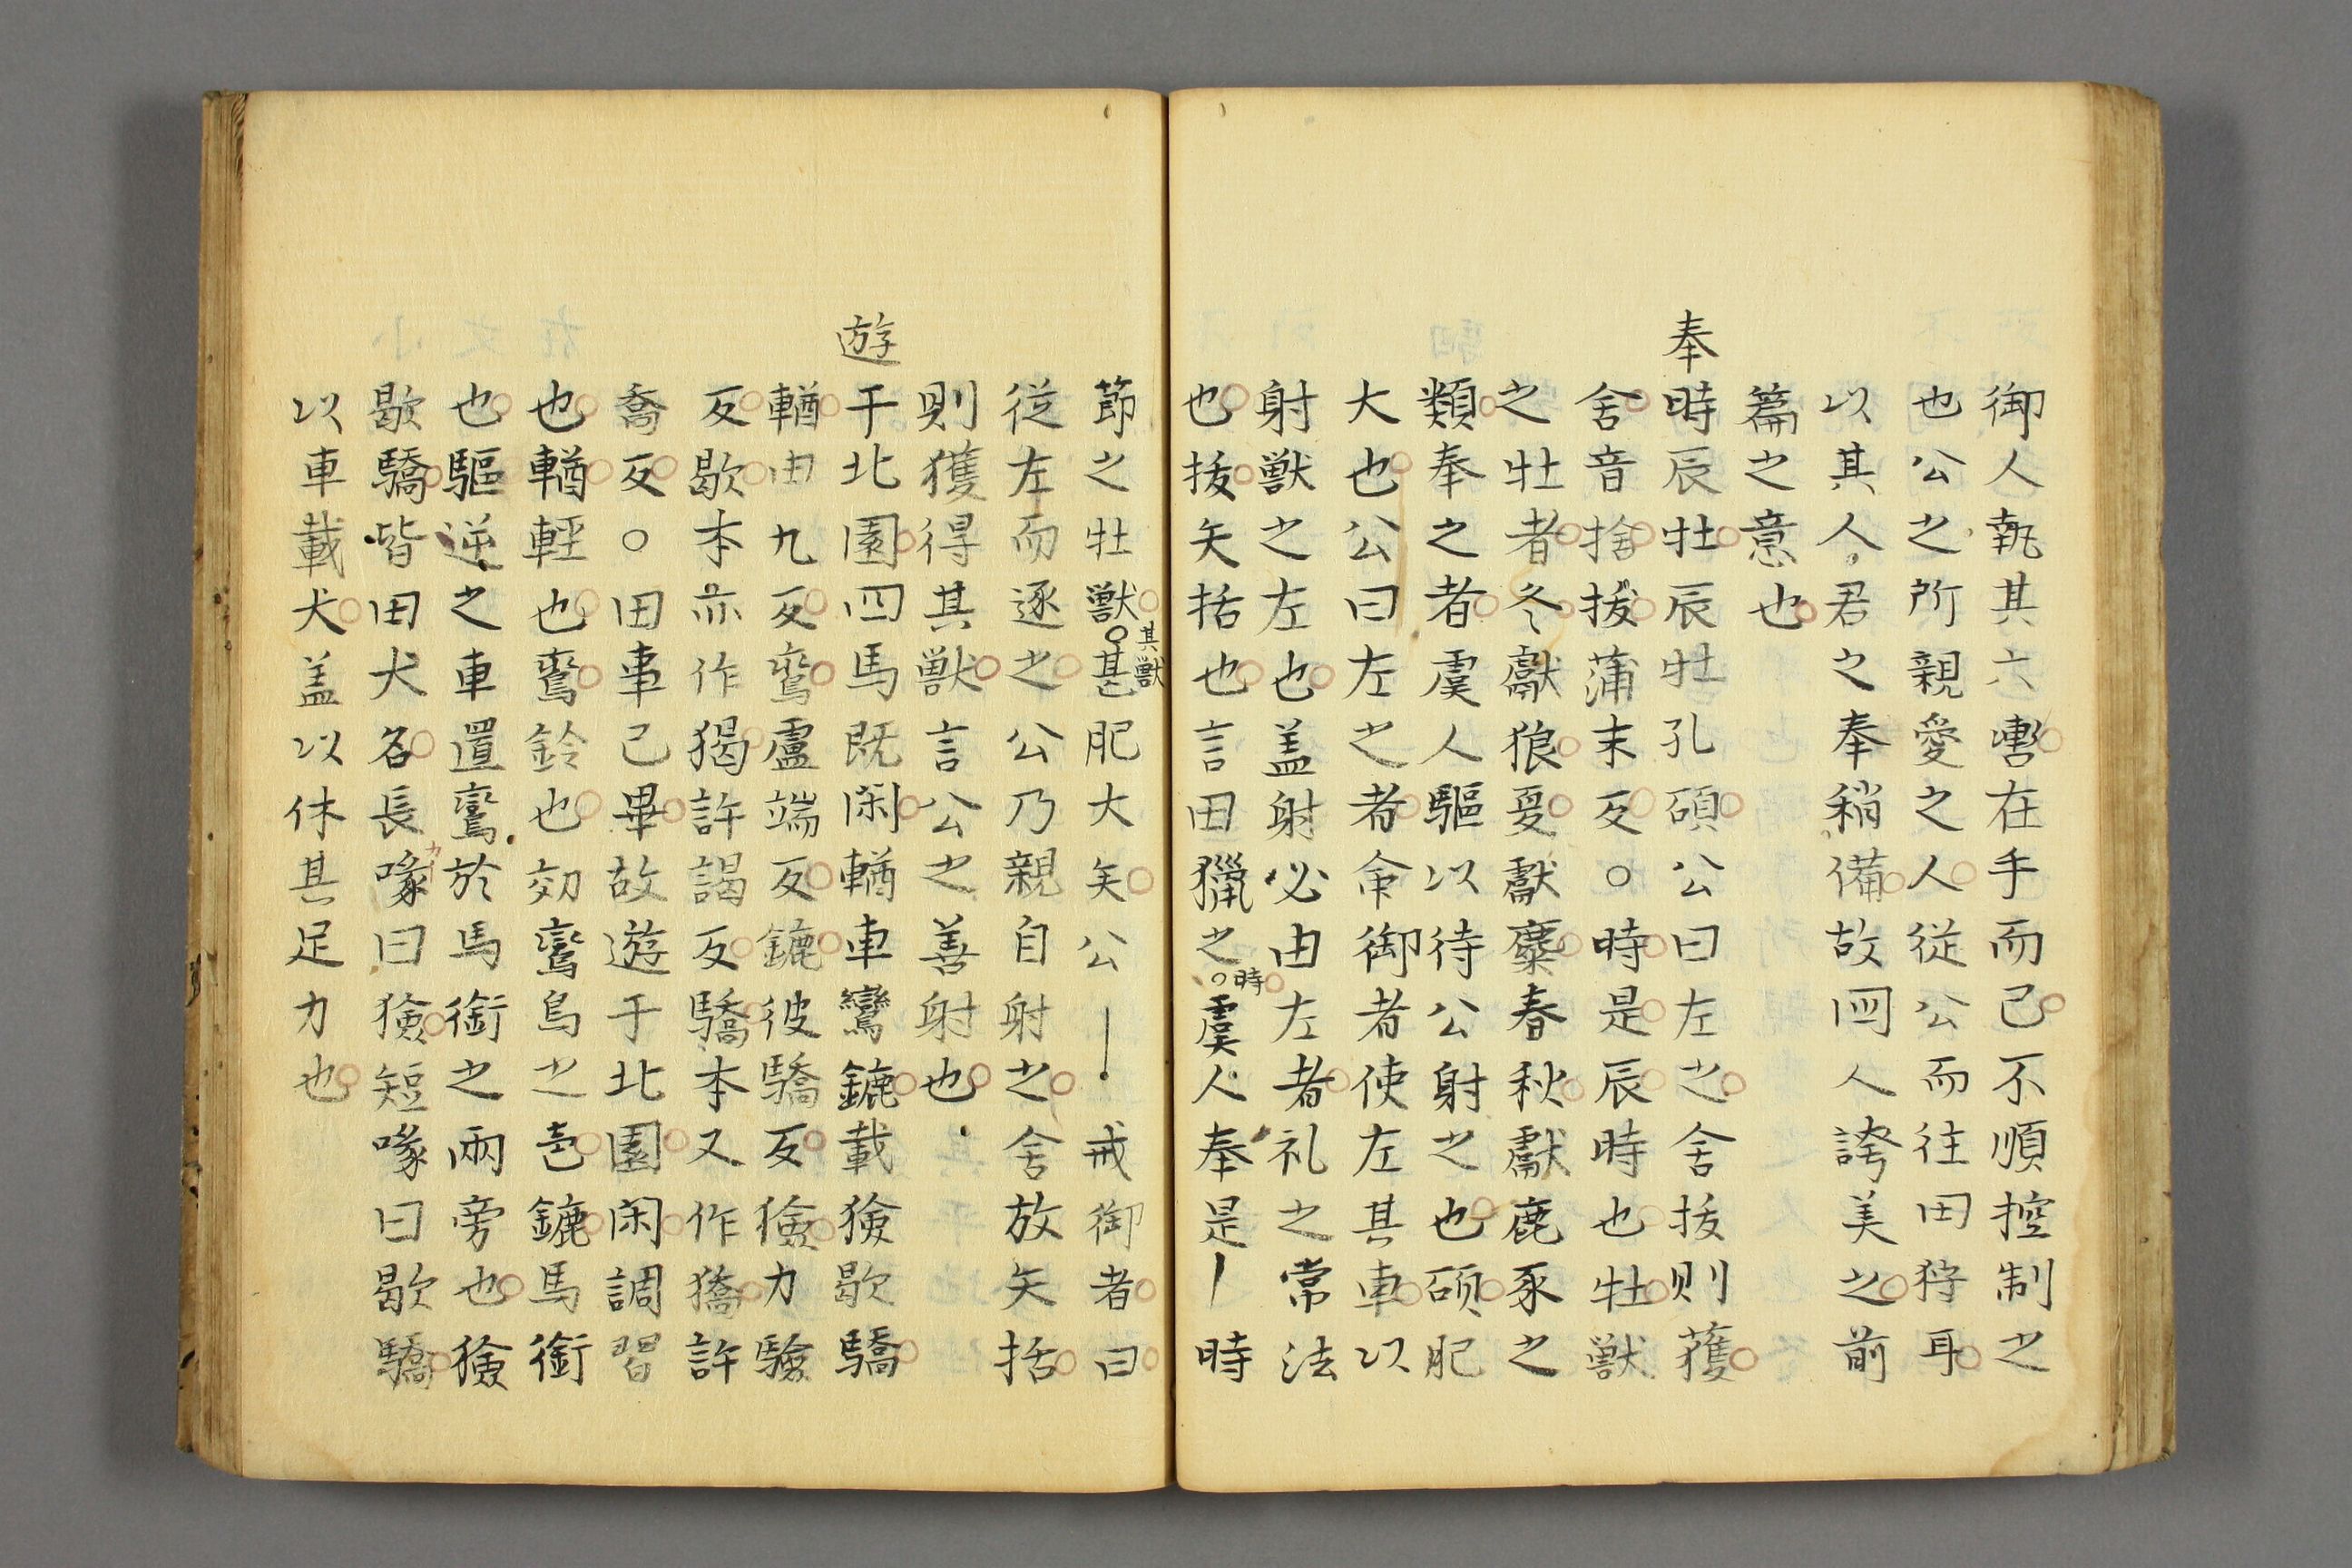 御人執其六轡在手而已不順控制之
也公之所親愛之人從公而往田狩耳
以其人君之奉稍備故国人誇美之前
篇之意也
奉時辰牡辰牡孔碩公曰左之舍拔則獲
舍音捨拔蒲末反○時是辰時也牡獸
之牡者冬獻狼夏獻麋春秋獻鹿豕之
類奉之者虞人驅以待公射之也碩肥
大也公曰左之者命御者使左其車以
射獸之左也盖射必由左者礼之常法
也拔矢括也言田獵之○時虞人奉是〡時
節之牡獸○其獸甚肥大矣公〡戒御者曰
從左而逐之公乃親自射之舍放矢括
則獲得其獸言公之善射也
遊于北園四馬既閑輶車鸞鑣載獫歇驕
輶由九反鸞盧端反鑣彼驕反獫力驗
反歇本亦作猲許謁反驕本又作獢許
喬反○田事已畢故遊于北園閑調習
也輶輕也鸞鈴也効鸞鳥之聲鑣馬銜
也驅逆之車置鸞於馬銜之兩旁也獫
歇驕皆田犬名長喙曰獫短喙曰歇驕
以車載犬盖以休其足力也